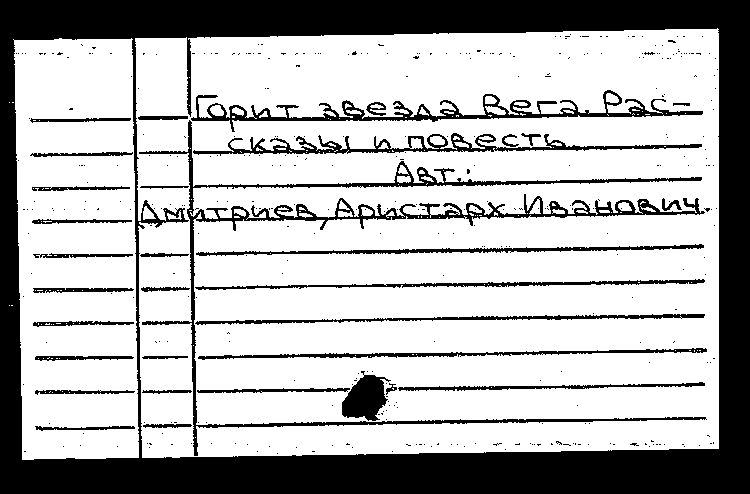 Горит звезда Вега. Рас-
сказы и повесть.
Авт.:
Дмитриев, Аристарх Иванович.